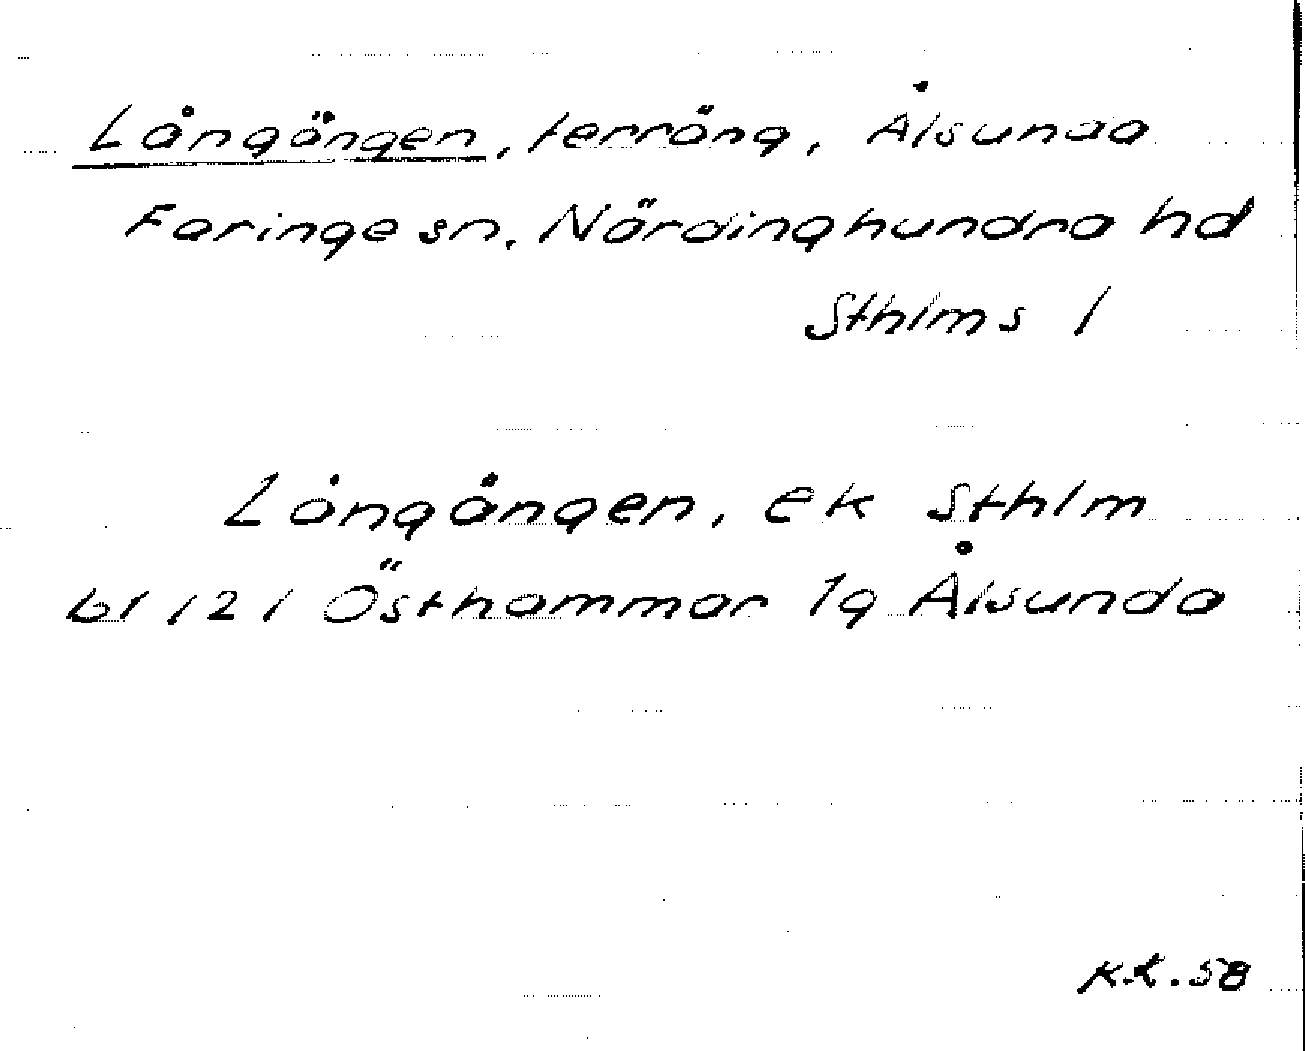 Långängen, terräng, Ålsunda
Faringe sn, Närdinghundra hd
Sthlms l
Långången, ek Sthlm
bl 121 Östhammar 1g Ålsunda
K.K. 58